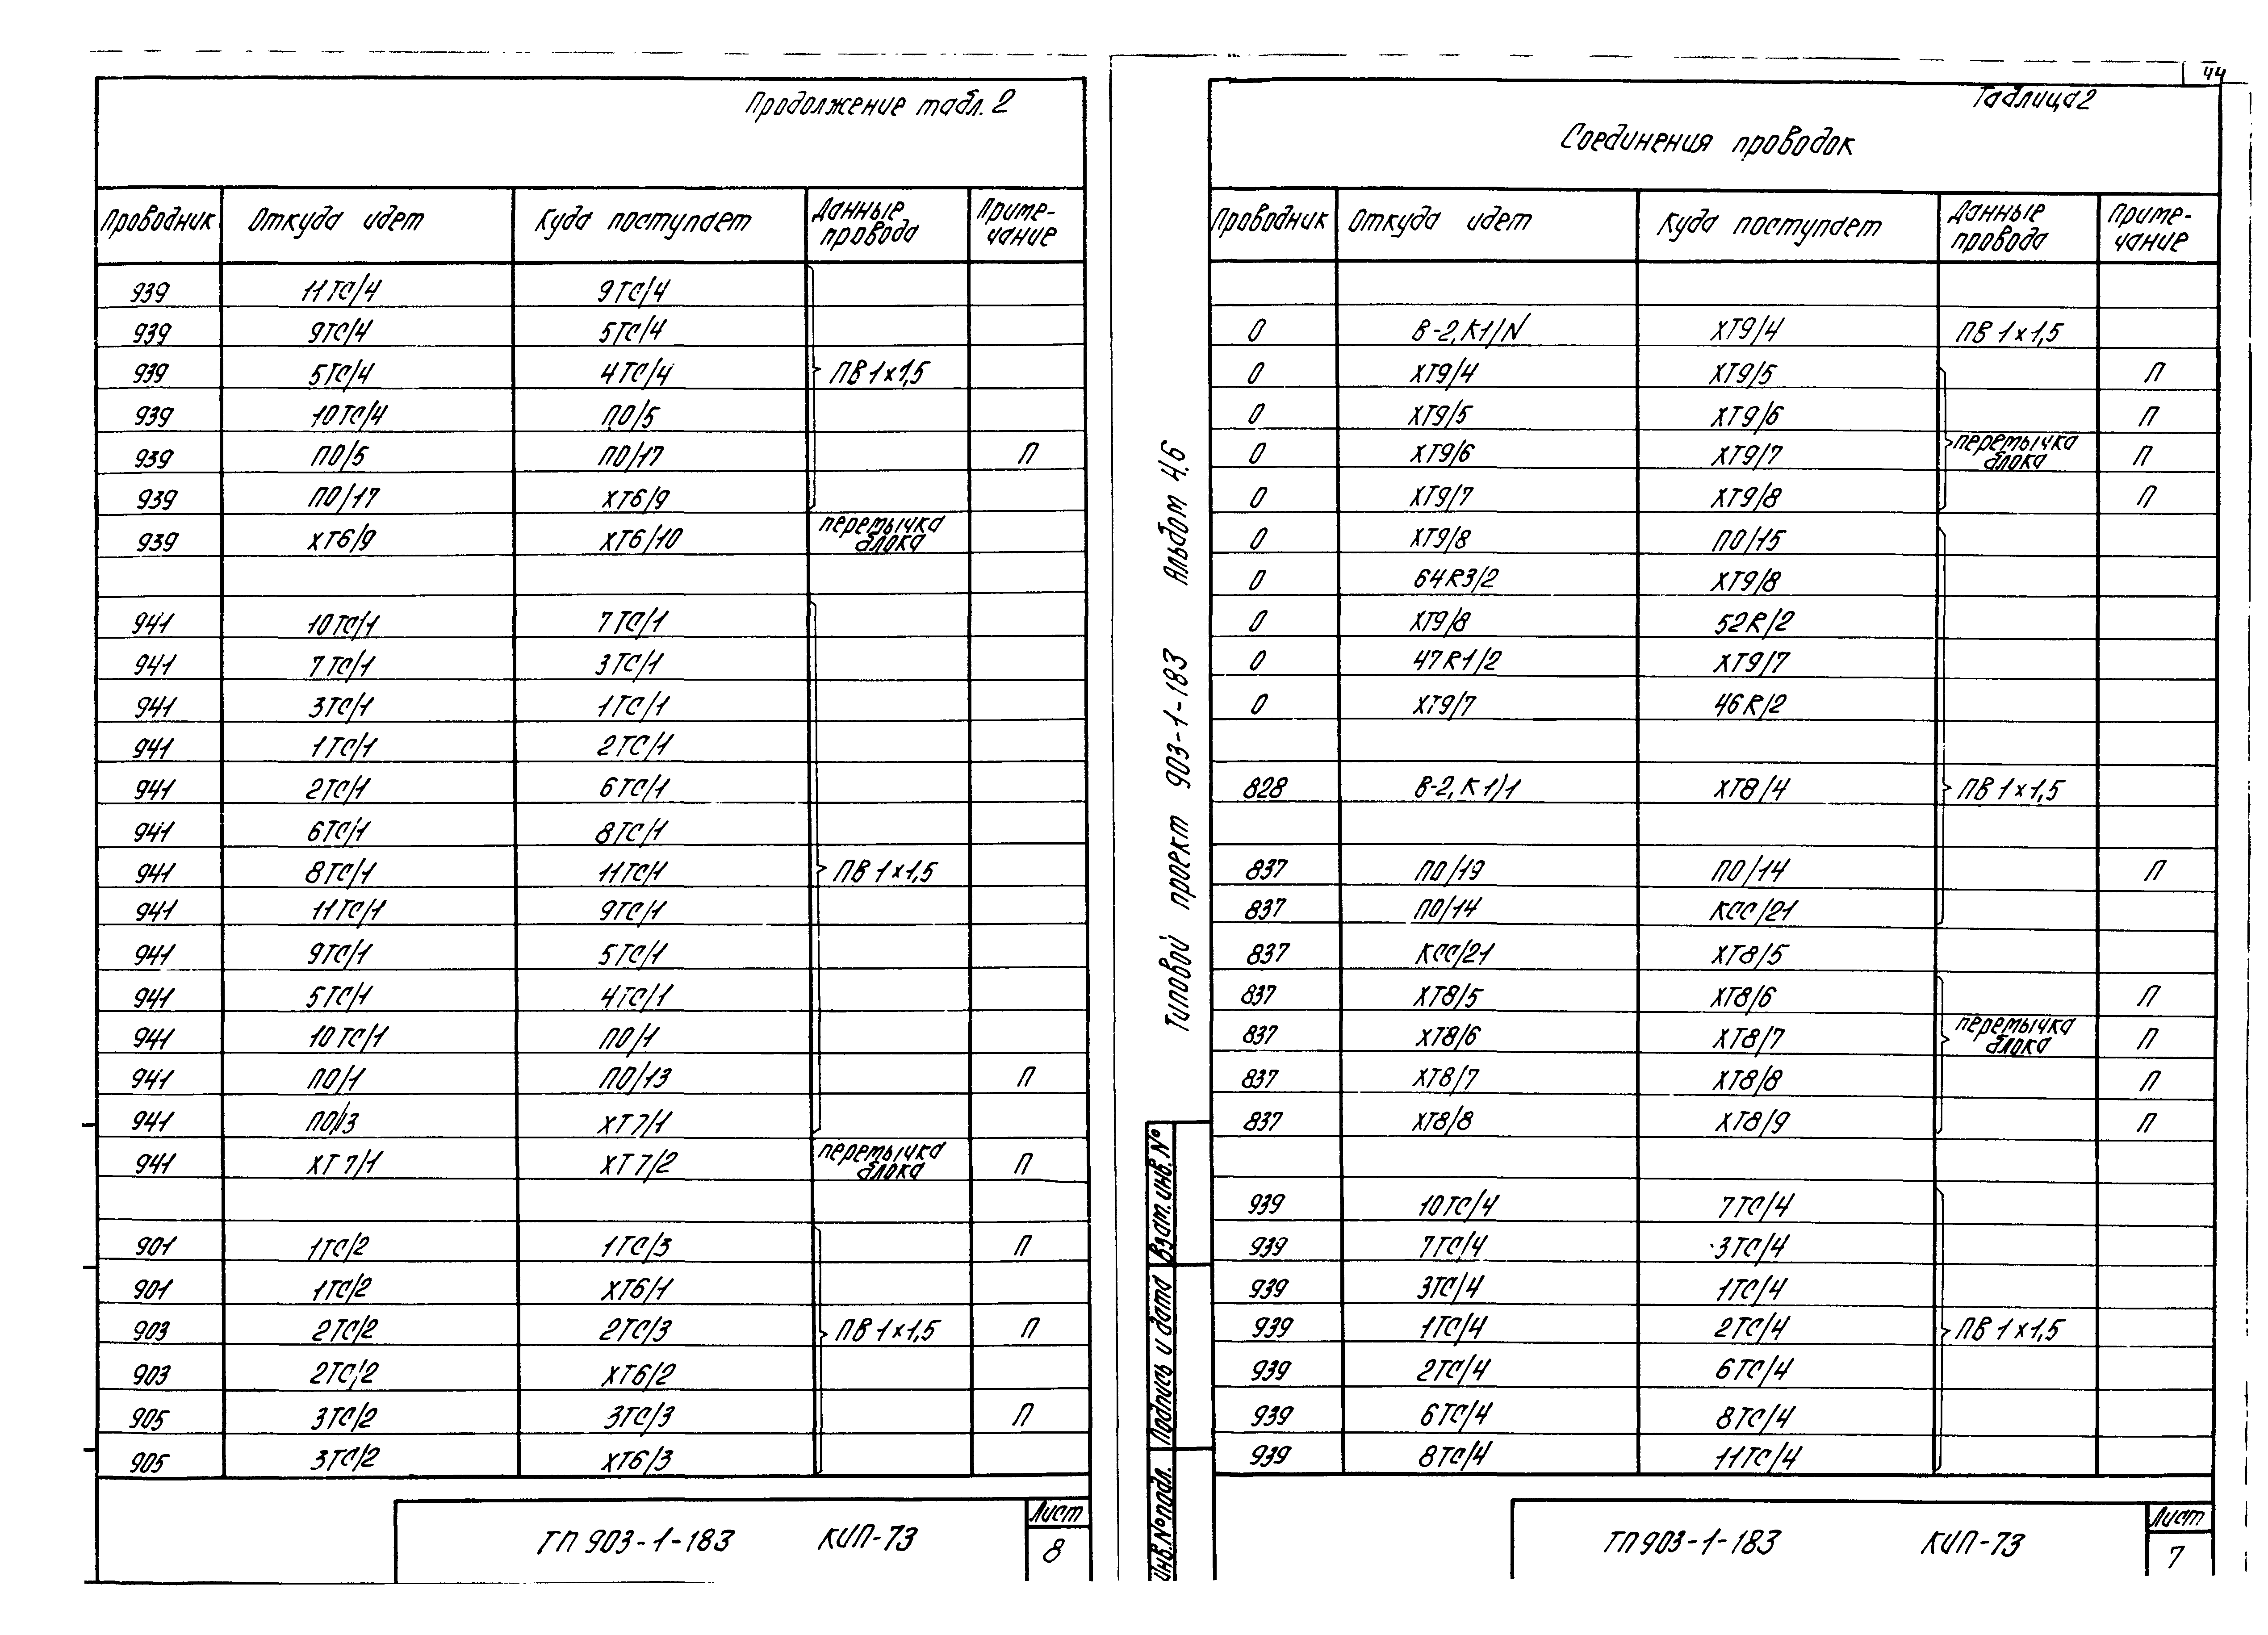 Продолжение табл. 2
Проводник Откуда идет Куда поступает Данные провода Примечание
939 11ТС/4 9ТС/4
939 9ТС/4 5ТС/4
939 5ТС/4 4ТС/4 ПВ 1×1,5
939 10ТС/4 ПО/5
939 ПО/5 ПО/17 П
939 ПО/17 ХТ6/9
939 ХТ6/9 ХТ6/10 перемычка блока
941 10ТС/1 7ТС/1
941 7ТС/1 3ТС/1
941 3ТС/1 1ТС/1
941 1ТС/1 2ТС/1
941 2ТС/1 6ТС/1
941 6ТС/1 8ТС/1
941 8ТС/1 11ТС/1 ПВ 1×1,5
941 11ТС/1 9ТС/1
941 9ТС/1 5ТС/1
941 5ТС/1 4ТС/1
941 10ТС/1 ПО/1
941 ПО/1 ПО/13 П
941 ПО/13 ХТ7/1
941 ХТ7/1 ХТ7/2 перемычка блока П
901 1ТС/2 1ТС/3 П
901 1ТС/2 ХТ6/1
903 2ТС/2 2ТС/3 ПВ 1×1,5 П
903 2ТС/2 ХТ6/2
905 3ТС/2 3ТС/3 П
905 3ТС/2 ХТ6/3
ТП 903-1-183 КИП-73
Лист
8
44
Таблица 2
Соединения проводок
Проводник Откуда идет Куда поступает Данные провода Примечание
0 В-2,К1/N ХТ9/4 ПВ 1×1,5
0 ХТ9/4 ХТ9/5 П
0 ХТ9/5 ХТ9/6 П
0 ХТ9/6 ХТ9/7 перемычка блока П
0 ХТ9/7 ХТ9/8 П
0 ХТ9/8 ПО/15
0 64R3/2 ХТ9/8
0 ХТ9/8 52R/2
0 47R1/2 ХТ9/7
0 ХТ9/7 46R/2
828 В-2,К1/1 ХТ8/4 ПВ 1×1,5
837 ПО/19 ПО/14 П
837 ПО/14 КСС/21
837 КСС/21 ХТ8/5
837 ХТ8/5 ХТ8/6 П
837 ХТ8/6 ХТ8/7 перемычка блока П
837 ХТ8/7 ХТ8/8 П
837 ХТ8/8 ХТ8/9 П
939 10ТС/4 7ТС/4
939 7ТС/4 3ТС/4
939 3ТС/4 1ТС/4
939 1ТС/4 2ТС/4 ПВ 1×1,5
939 2ТС/4 6ТС/4
939 6ТС/4 8ТС/4
939 8ТС/4 11ТС/4
ТП 903-1-183 КИП-73
Лист
7
Типовой проект 903-1-183 Альбом 4.6
Инв.№подл. Подпись и дата Взам.инв.№